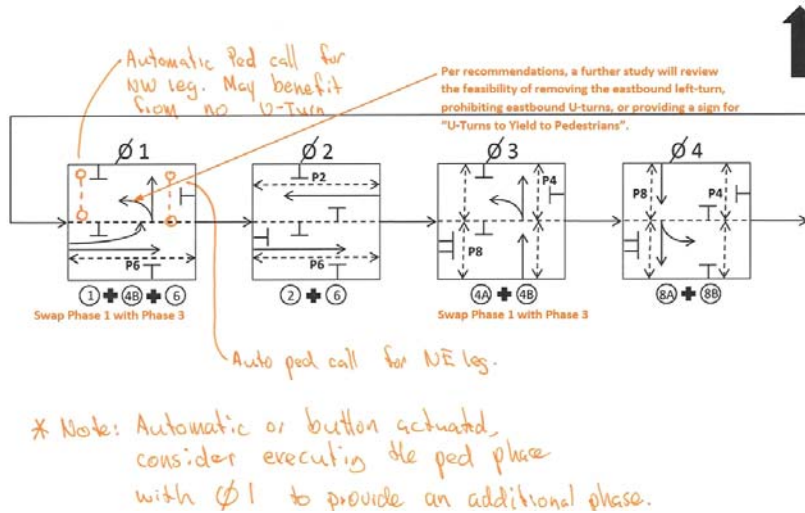 Automatic Ped call for
NW leg. May benefit
from no U-Turn
Per recommendations, a further study will review
the feasibility of removing the eastbound left-turn,
prohibiting eastbound U-turns, or providing a sign for
"U-Turns to Yield to Pedestrians".
Ø 1
Ø 2
Ø 3
Ø 4
P2
P4
P8
P4
P6
P6
P8
1 + 4B + 6
2 + 6
4A + 4B
8A + 8B
Swap Phase 1 with Phase 3
Swap Phase 1 with Phase 3
Auto ped call for NE leg.
* Note: Automatic or button actuated,
consider executing the ped phase
with Ø1 to provide an additional phase.